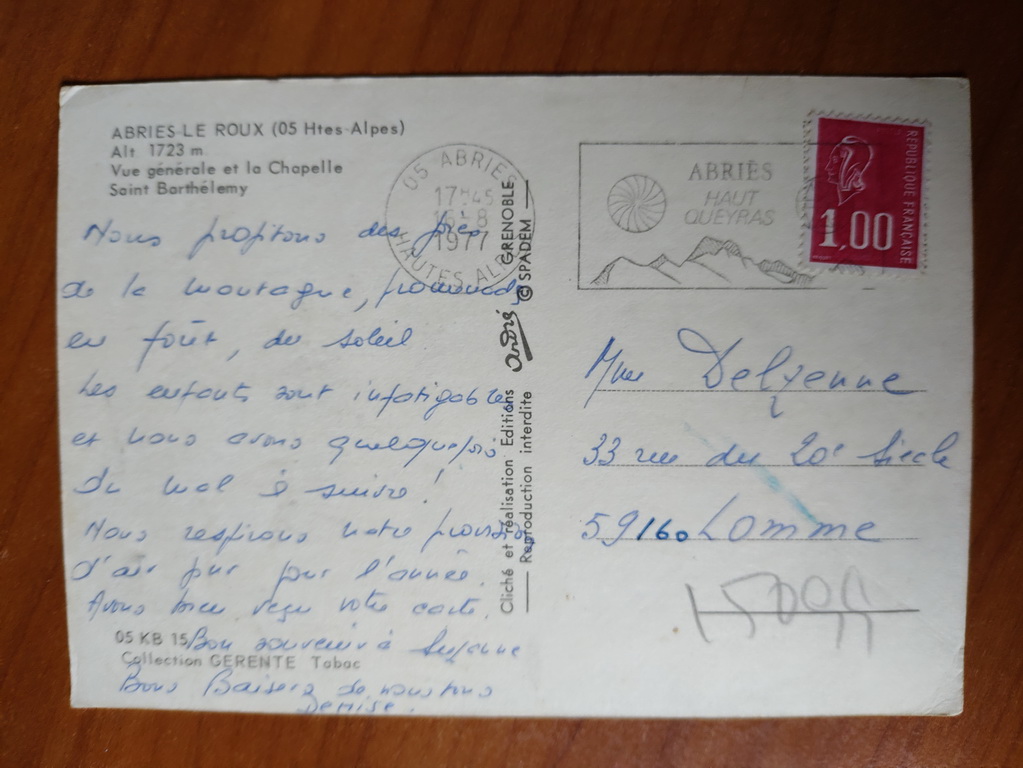 ABRIES-LE ROUX (05 Htes-Alpes)
Alt 1723 m
Vue générale et la Chapelle
Saint Barthélemy
Nous profitons des joies
de la montagne, promenade
en forêt, du soleil
Les enfants sont infatigables
et nous avons quelquefois
du mal à suivre !
Nous respirons notre provision
d'air pur pour l'année.
Avons bien reçu votre carte.
Bon souvenir à Suzanne
Bons Baisers de nous tous
Denise.
05 KB 15
Collection GERENTE Tabac
05 ABRIES
17H45
16-8
1977
HAUTES ALPES
Cliché et réalisation Editions André GRENOBLE
Reproduction interdite © SPADEM
ABRIÈS
HAUT
QUEYRAS
REPUBLIQUE FRANÇAISE
1,00
Mme Delyenne
33 rue du 20e Siècle
59160 Lomme